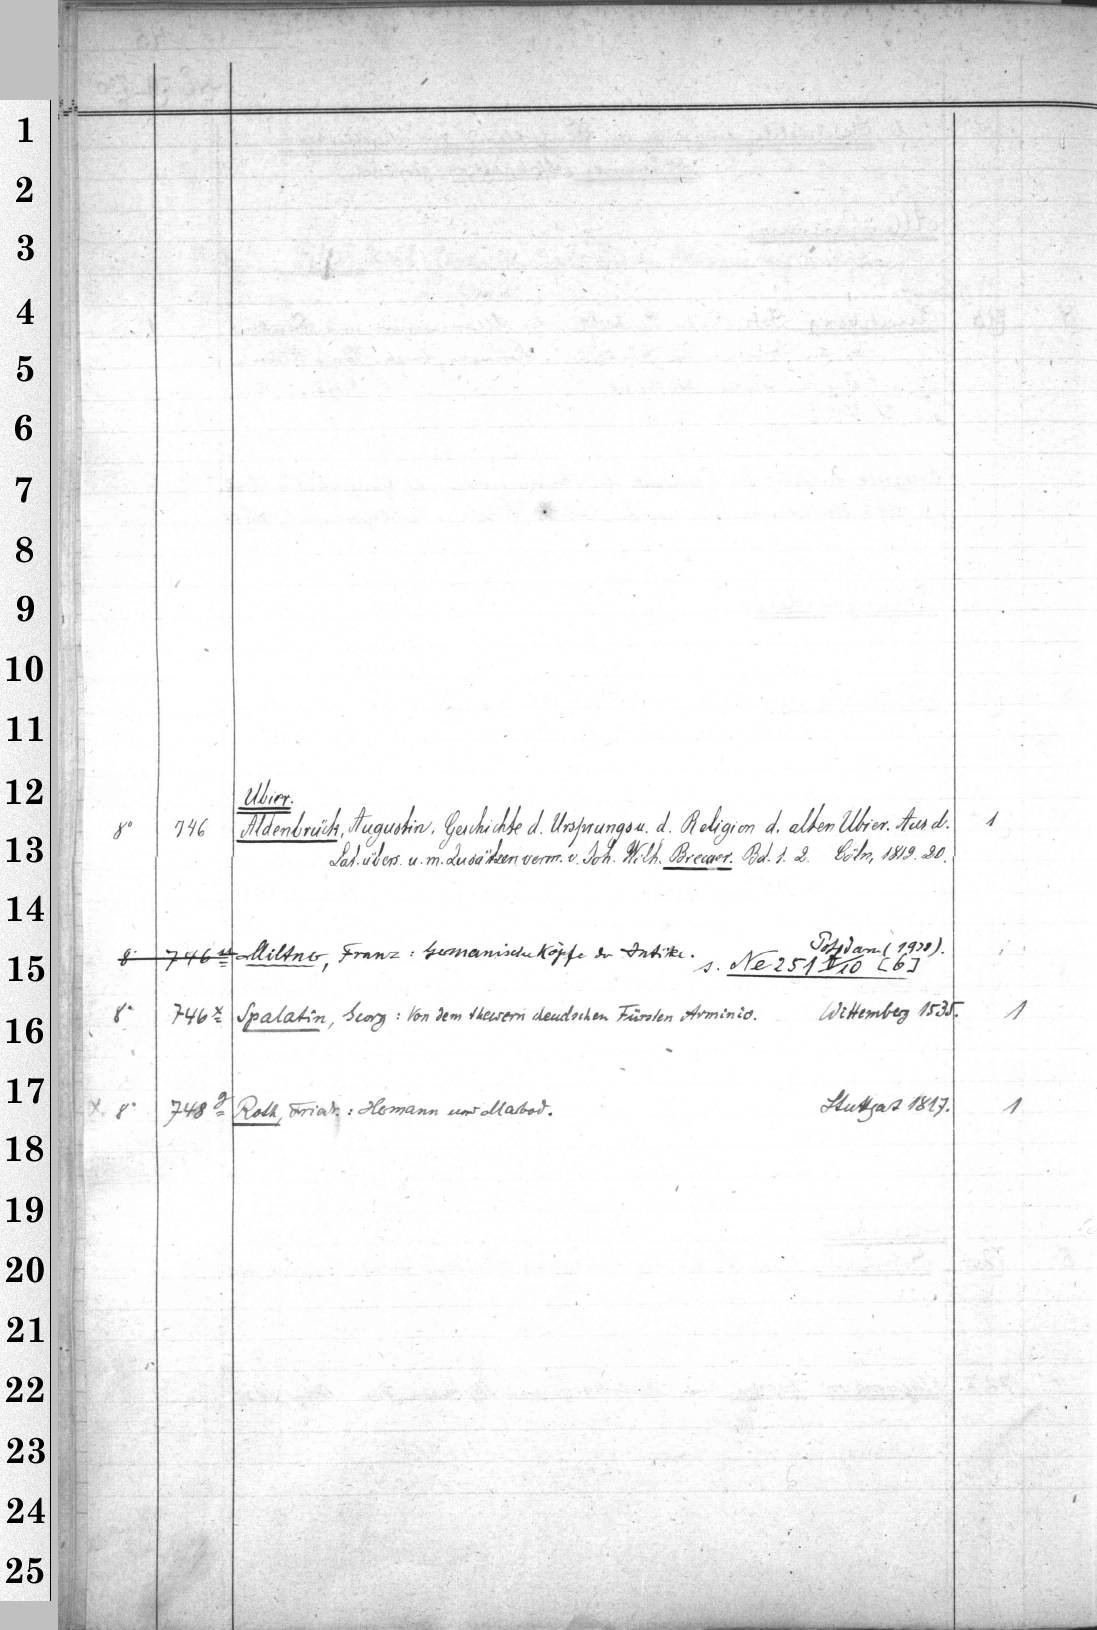 Ubier.
8° 746 Aldenbrück, Augustin. Geschichte d. Ursprungs u. d. Religion d. alten Ubier. Aus d. 1
Lat. übers. u. m. Zusätzen verm. v. Joh. Wilh. Brewer. Bd. 1. 2. Cöln, 1819. 20.
8° 746 Miltner, Franz: Germanische Köpfe der Antike. Potsdam
s. Ne 251 [6]
8° 746x Spalatin, Georg: Von dem thewern deudschen Fürsten Arminio. Wittemberg 1535. 1
x 8° 748g Roth, Friedr.: Hermann und Marbod. Stuttgart 1817. 1
1
2
3
4
5
6
7
8
9
10
11
12
13
14
15
16
17
18
19
20
21
22
23
24
25